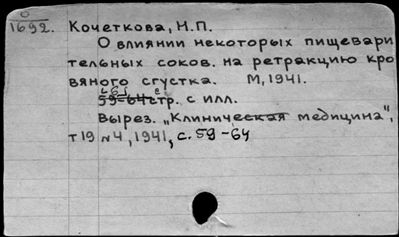 0
1692. Кочеткова, Н.П.
О влиянии некоторых пищевари
тельных соков. на ретракцию кро
вяного сгустка. М, 1941.
59-64 стр. с илл.
Вырез. „Клиническая медицина",
т 19 №4, 1941, с. 59-64